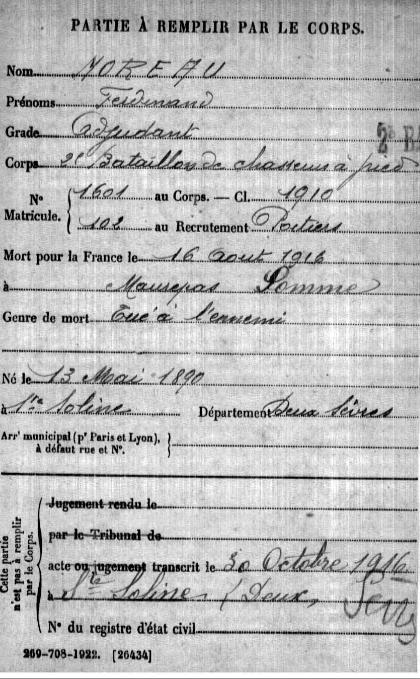 PARTIE À REMPLIR PAR LE CORPS.
Nom MOREAU
Prénoms Ferdinand
Grade Adjudant
Corps 2e Bataillon de chasseurs à pied
No Matricule. 1601 au Corps. — Cl. 1910
102 au Recrutement Poitiers
Mort pour la France le 16 Aout 1916
à Maurepas Somme
Genre de mort Tué à l'ennemi
Né le 13 Mai 1890
à Ste Soline Département Deux Sèvres
Arrt municipal (pr Paris et Lyon),
à défaut rue et No.
Cette partie n'est pas à remplir par le Corps.
Jugement rendu le
par le Tribunal de
acte ou jugement transcrit le 30 Octobre 1916
à Ste Soline (Deux Sèvres
No du registre d'état civil
269-708-1922. [26434]